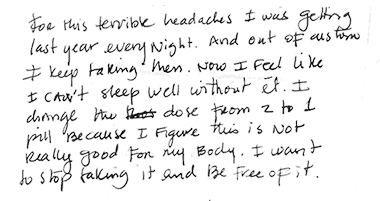 For this terrible headaches I was getting
last year every Night. And out of custom
I keep taking then. Now I Feel like
I CAN't sleep well without it. I
change the dose from 2 to 1
pill Because I Figure this is Not
Really good For my Body. I want
to stop taking it and Be Free of it.